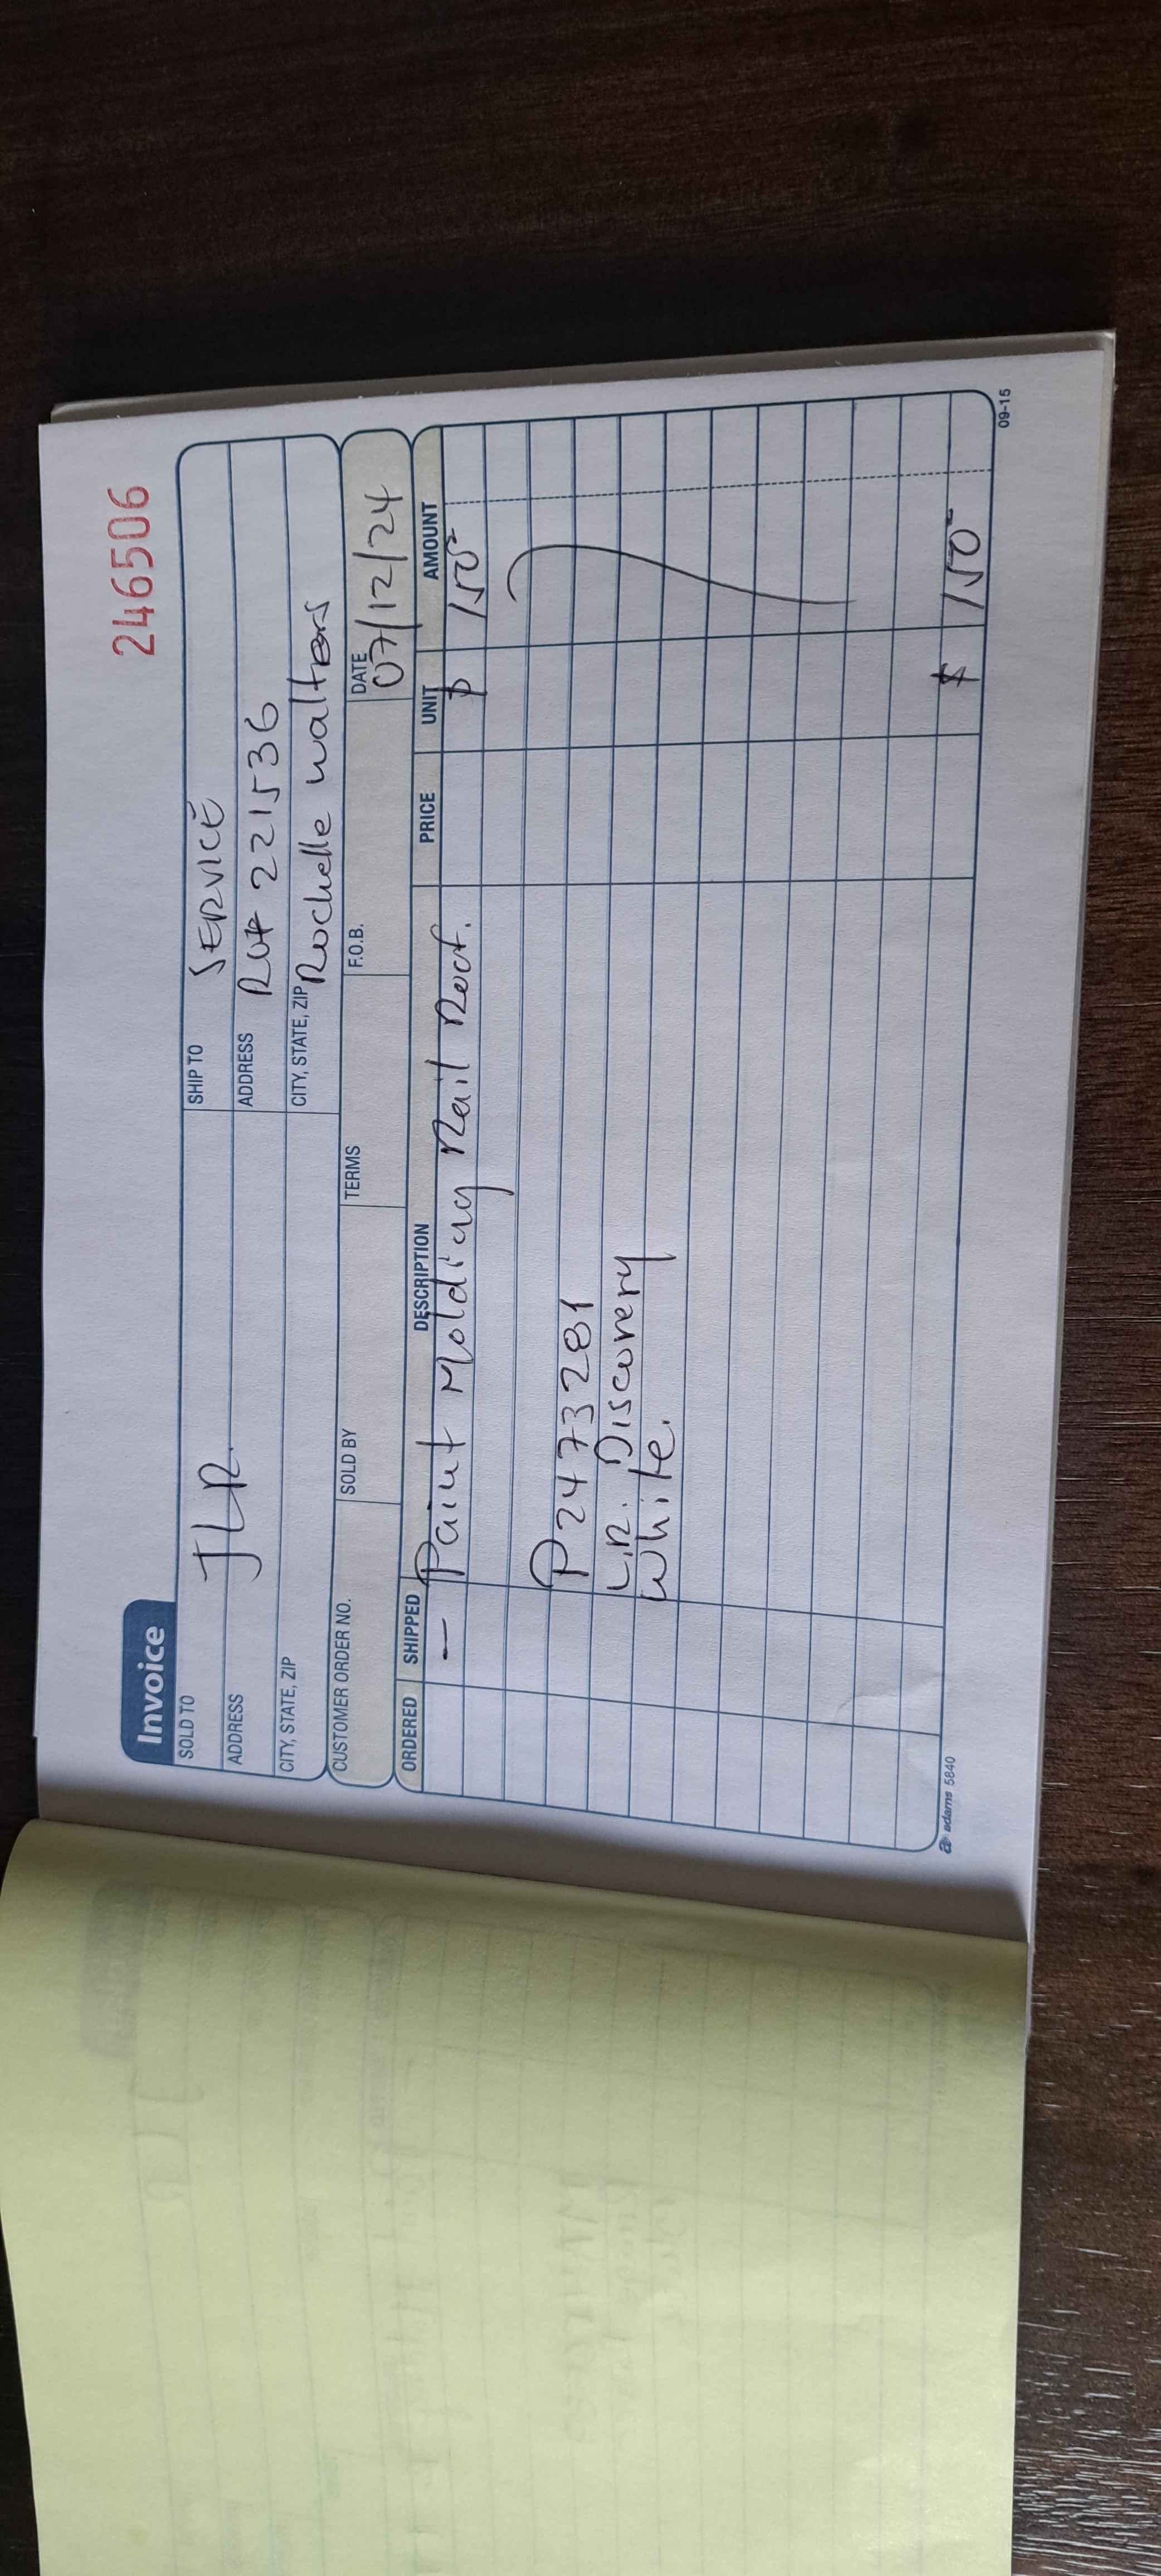 246506
Invoice
SOLD TO JLR.
SHIP TO SERVICE
ADDRESS
ADDRESS RO# 221536
CITY, STATE, ZIP
CITY, STATE, ZIP Rochelle walters
CUSTOMER ORDER NO. SOLD BY TERMS F.O.B. DATE 07/12/24
ORDERED SHIPPED DESCRIPTION PRICE UNIT AMOUNT
— Paint Molding Rail Roof. $ 150
P2473281
L.R. Discovery
White.
$ 150
adams 5840
09-15